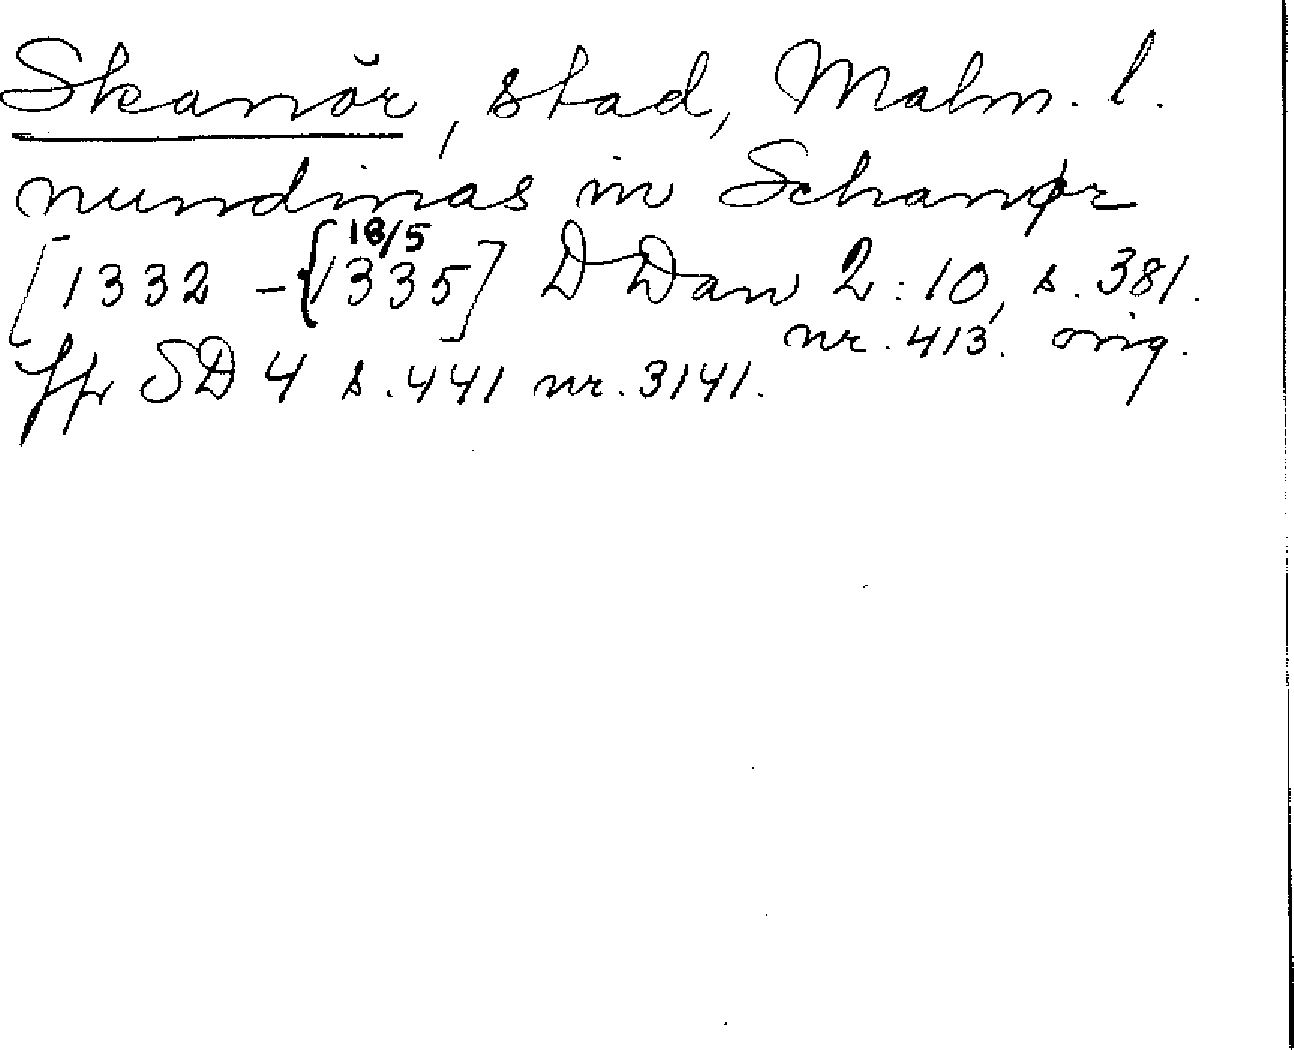 Skanör, stad, Malm. l.
nundinas in Schanør
[1332 - {18/5 1335] D Dan 2:10, s. 381.
nr. 413. orig.
Jfr SD 4 s. 441 nr. 3141.